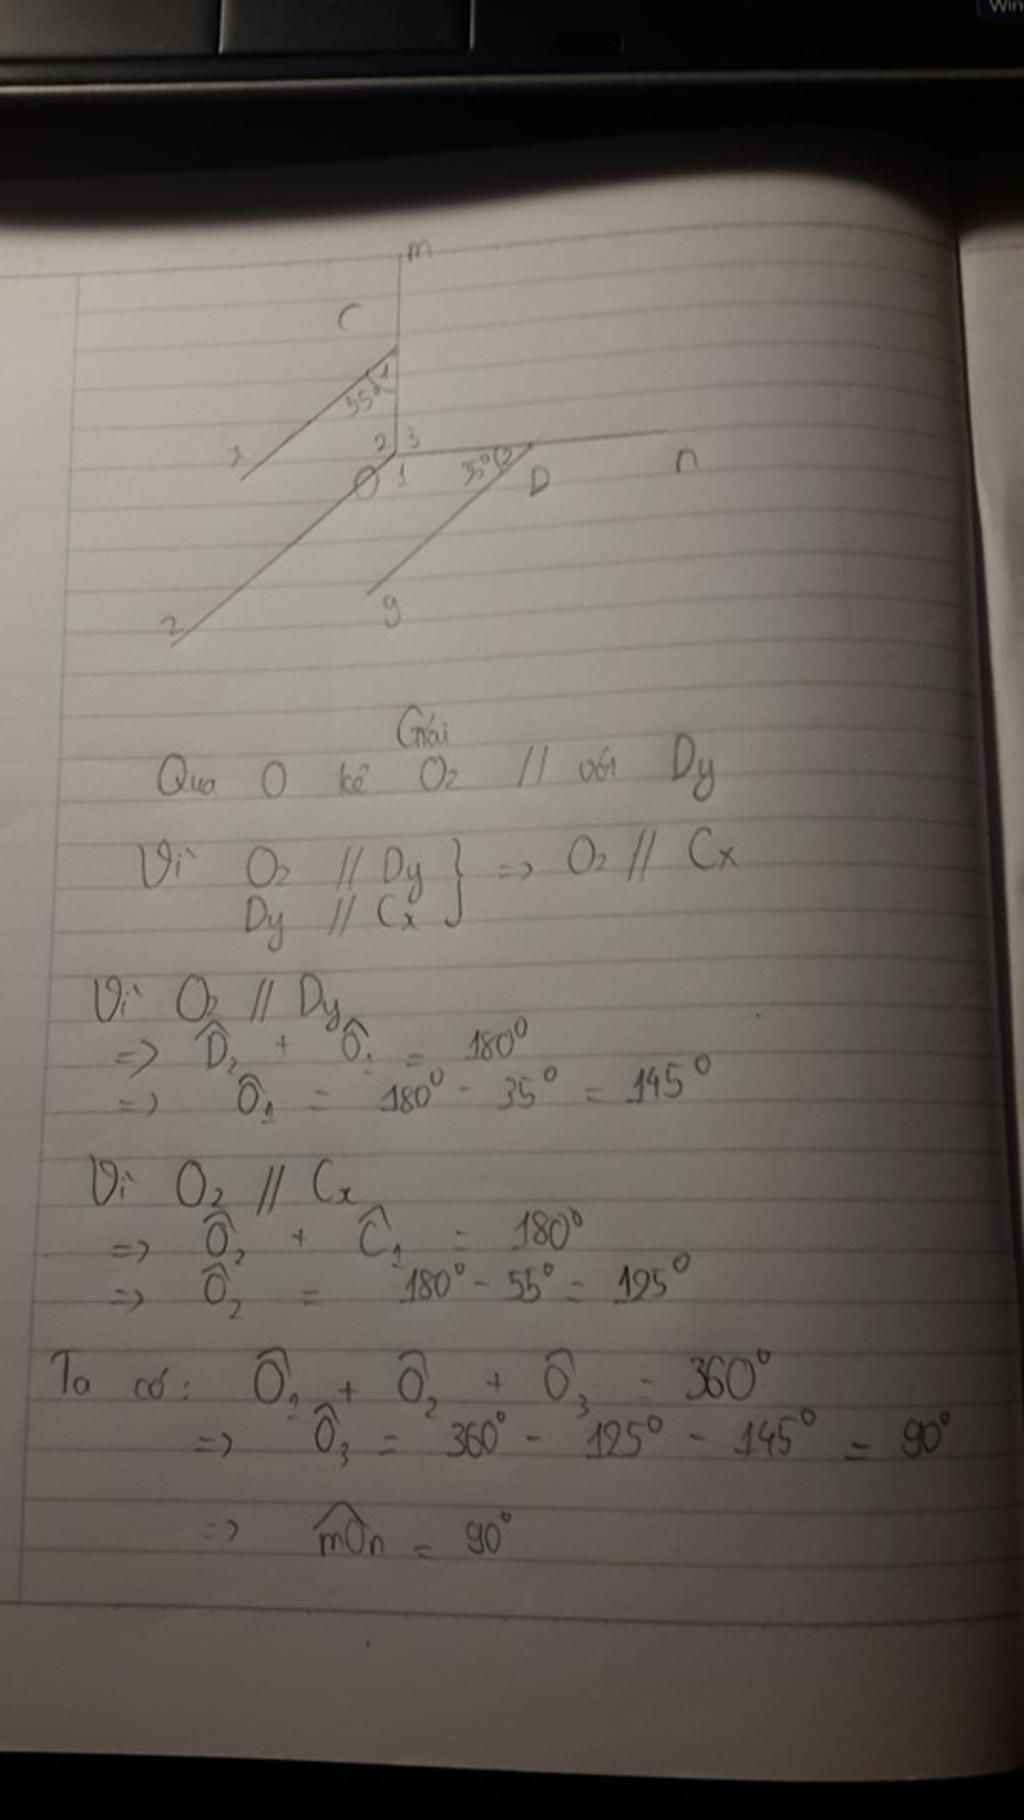 Win
m
C
1
55°
x
2 3
O 1
35° 2
D
n
y
z
Giải
Qua O kẻ Oz // với Dy
Vì Oz // Dy } => Oz // Cx
Dy // Cx
Vì Oz // Dy
=> D̂₂ + Ô₁ = 180°
=> Ô₁ = 180° - 35° = 145°
Vì Oz // Cx
=> Ô₂ + Ĉ₁ = 180°
=> Ô₂ = 180° - 55° = 125°
Ta có: Ô₁ + Ô₂ + Ô₃ = 360°
=> Ô₃ = 360° - 125° - 145° = 90°
=> m̂On = 90°